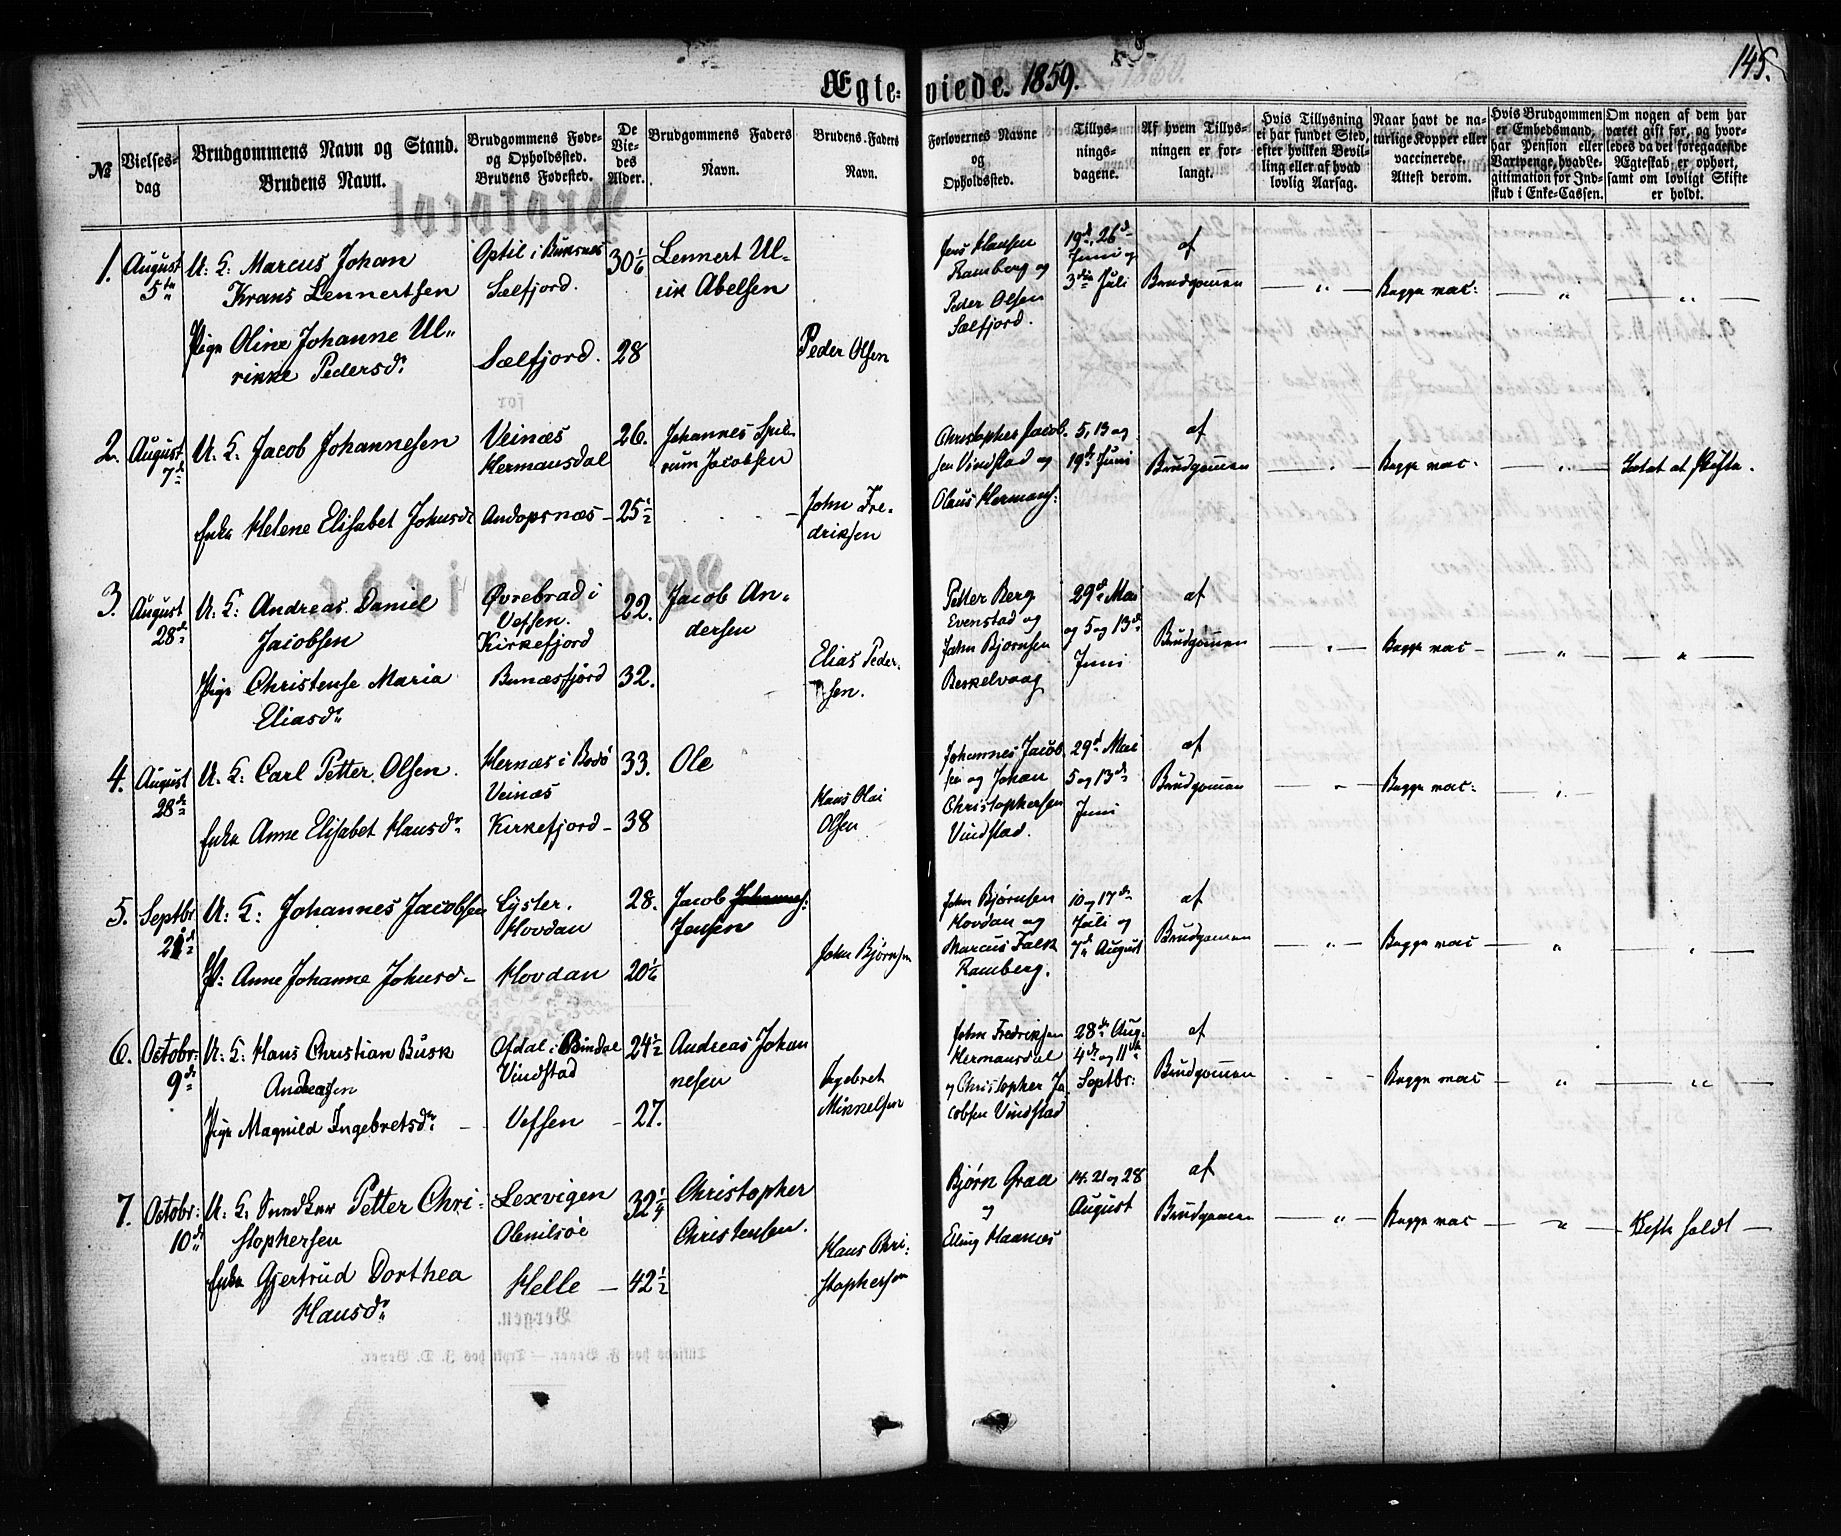 145.
Ægteviede. 1859.
№
Vielses-
dag
Brudgommens Navn og Stand.
Brudens Navn.
Brudgommens Føde-
og Opholdssted.
Brudens Fødested.
De
Vie-
des
Alder.
Brudgommens Faders
Navn.
Brudens Faders
Navn.
Forlovernes Navne
og
Opholdssted.
Tillys-
nings-
dagene.
Af hvem Tillys-
ningen er for-
langt.
Hvis Tillysning
ei har fundet Sted,
efter hvilken Bevil-
ling eller af hvad
lovlig Aarsag.
Naar havt de na-
turlige Kopper eller
vaccinerede.
Attest derom.
Hvis Brudgommen
er Embedsmand,
har Pension eller
Vartpenge, hvad Le-
gitimation for Ind-
skud i Enke-Cassen.
Om nogen af dem har
været gift før, og hvor-
ledes da det foregaaende
Ægteskab er ophørt,
samt om lovligt Skifte
er holdt.
1. August 5te
U: K: Marcus Johan
Krans Lennertsen
Pige Oline Johanne Ul-
rikke Pedersdr
Optil i Buksnes
Sælfjord.
Sælfjord.
30 1/6
28
Lennert Ul-
rik Abelsen
Peder Olsen
Jens Hansen
Ramberg og
Peder Olsen
Sælfjord.
19d, 26d
Juni og
3die Juli
af
Brudgommen
— " —
Begge vac:
— " —
— " —
2. August 7d
U. K. Jacob Johannesen
Enke Helene Elisabet Johnsdr
Veinæs
Hermansdal
Andopsnæs
26.
25 1/2
Johannes
Jacobsen
John Fre-
driksen
Christopher Jacob-
sen Vindstad og
Olaus Hermans:
5, 13 og
19de Juni
af
Brudgommen
— " —
Begge vac.
— " —
Intet at skifte.
3. August 28d
U. K: Andreas Daniel
Jacobsen
Pige Christense Maria
Eliasdr
Øvrebrad i
Vefsen.
Kirkefjord
Bunæsfjord
22.
32.
Jacob An-
dersen
Elias Peder-
sen.
Petter Berg
Evenstad og
John Bjørnsen
29d Mai
og 5 og 13d
Juni
af
Brudgommen
— " —
Begge vac —
— " —
— " —
4. August 28de
U. K: Carl Petter Olsen.
Enke Anne Elisabet Hansdr
Hernæs i Bodø
Veinæs
Kirkefjord
33.
38
Ole
Hans Olai
Olsen
Johannes Jacob-
sen og Johan
Christophersen
Vindstad.
29d Mai
5 og 13de
Juni
af
Brudgommen
Begge vac:
5. Septbr 21d
U: K: Johannes Jacobsen
P: Anne Johanne Johnsd
Lyster.
Hovdan
Hovdan
28.
20 1/6
Jacob Johannes:
Jensen
John Bjørnsen
John Bjørnsen
Hovdan og
Marcus Falk
Ramberg.
10 og 17de
Juli og
7d August
af
Brudgommen
— " —
Begge vac
"
6. Octobr: 9d
U: K: Hans Christian Busk
Andreasen
Pige Magnild Ingebretsdr
Ofdal i Bindal
Vindstad
Vefsen
24 1/2
27.
Andreas Johan
nesen
Ingebret
Mikkelsen
John Fredriksen
Hermansdal
og Christopher Ja
cobsen Vindstad
28de Aug.
4de og 11de
Septbr:
af
Brudgommen
Begge vac
— " —
— " —
7. Octobr: 10d
U. K. Snedker Petter Chri-
stophersen
Enke Gjertrud Dorthea
Hansdr
Lexvigen
Olenilsøe
Helle
32 1/4
42 1/2
Christopher
Christensen.
Hans Chri-
stophersen
Bjørn Graa
og
Elling Haanæs
14. 21 og 28
August
af
Brudgommen
— " —
Begge vac
— " —
Skifte holdt —